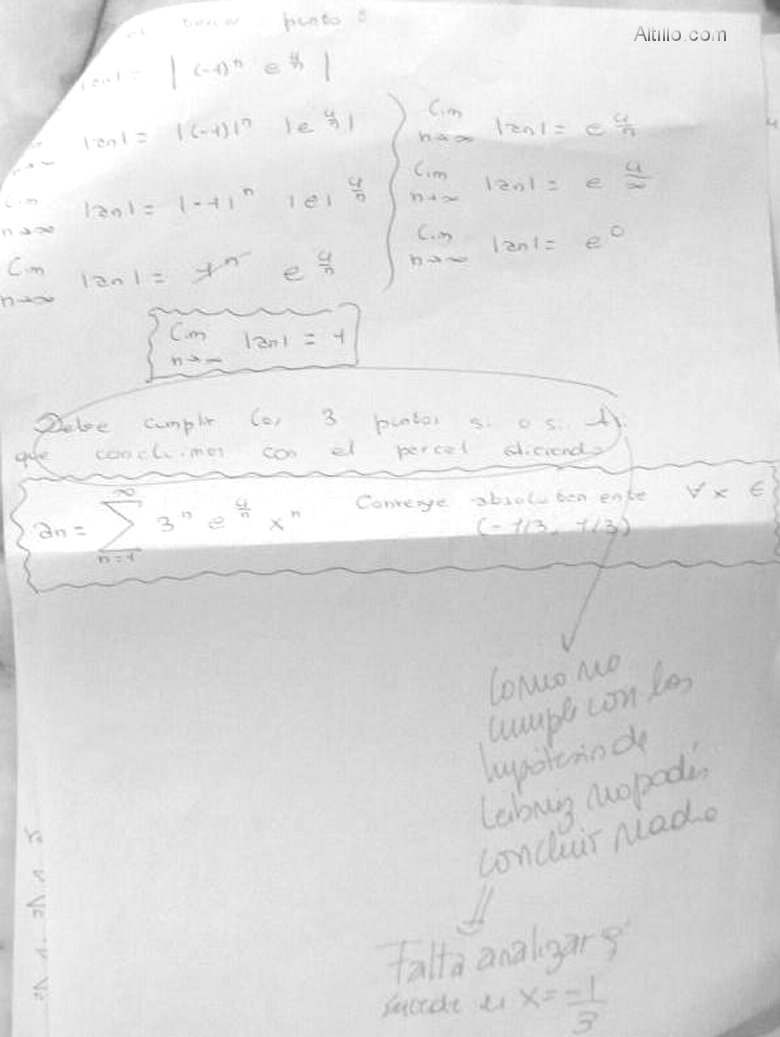 Altillo.com
tercer punto:
|an| = | (-1)^n e^{4/n} |
|an| = |(-1)|^n |e^{4/n}|
Lim n→∞ |an| = |-1|^n |e|^{4/n}
Lim n→∞ |an| = 1^n e^{4/n}
Lim n→∞ |an| = e^{4/n}
Lim n→∞ |an| = e^{4/∞}
Lim n→∞ |an| = e^0
Lim n→∞ |an| = 1
Debe cumplir los 3 puntos si o si. Asi
que concluimos con el parcial diciendo
an = ∑_{n=1}^{∞} 3^n e^{4/n} x^n Converge absolutamente ∀ x ∈
(-1/3, 1/3)
Como no
cumple con las
hipótesis de
Leibniz no podés
concluir nada
⇓
Falta analizar q'
sucede en x = -1/3